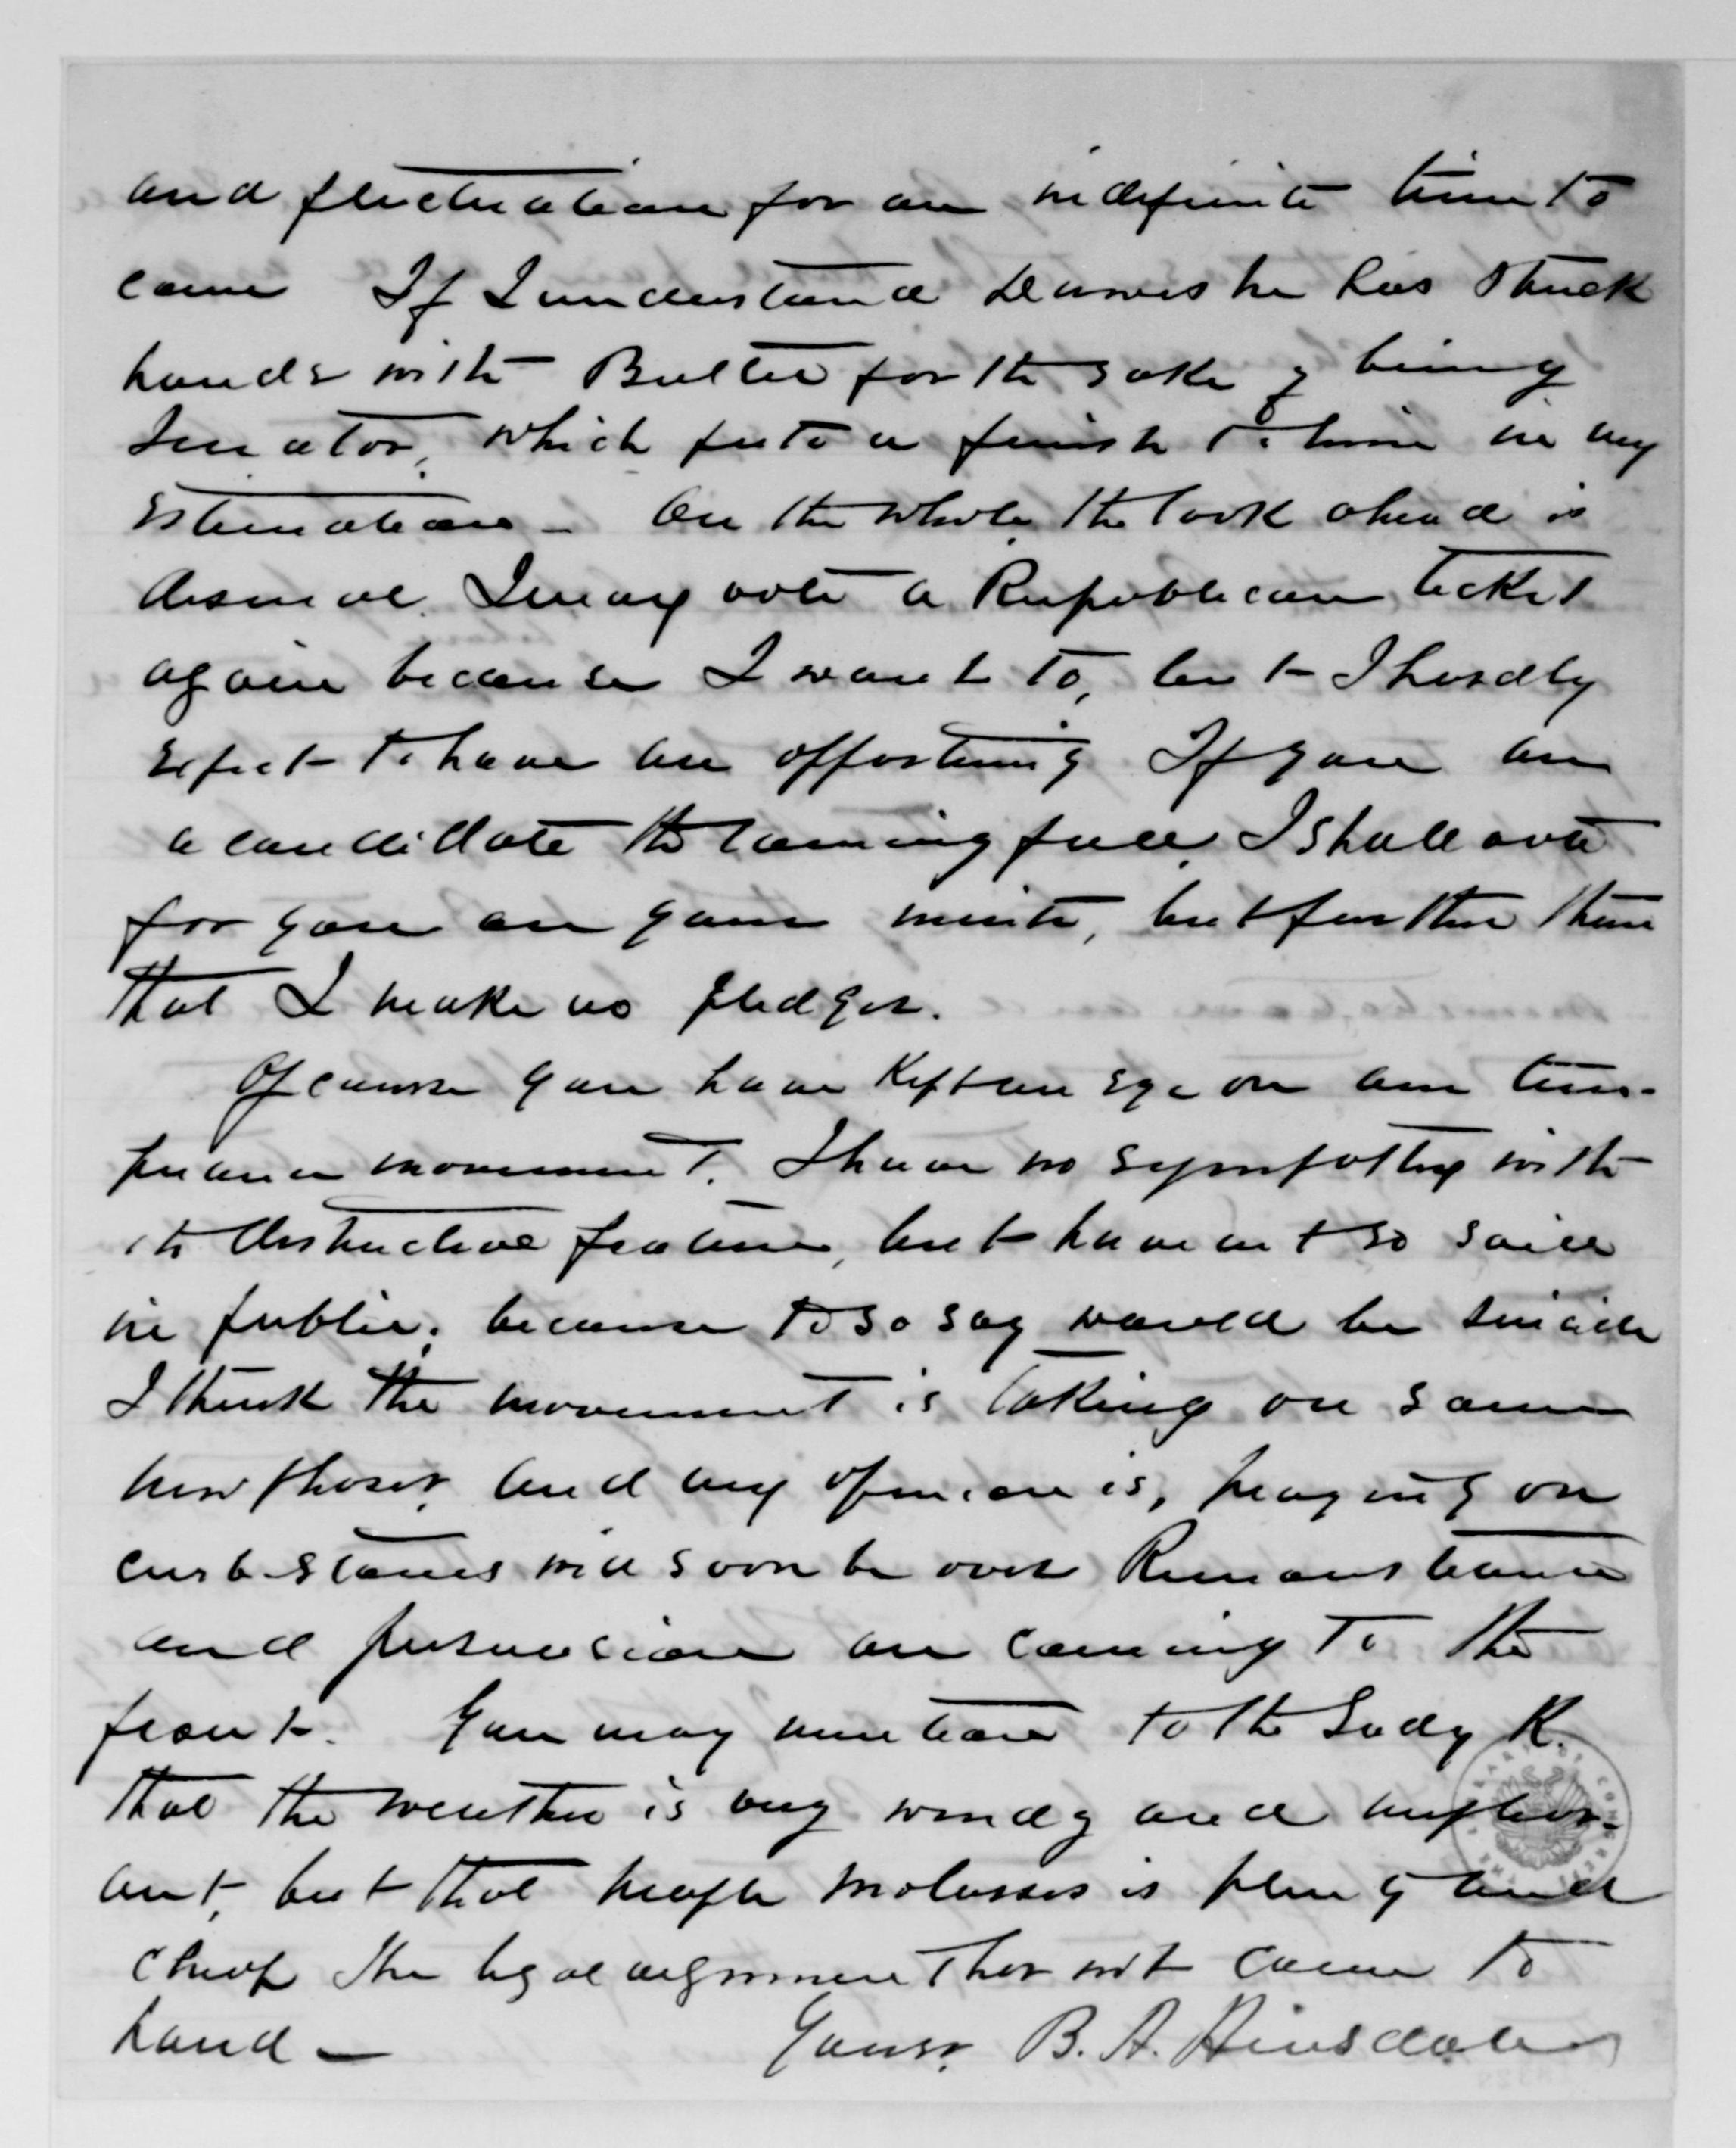 and fluctuation for an indefinite time to
come If I understand Dawes he has struck
hands with Butler for the sake of being
Senator, which puts a finish to him in my
estimation – On the whole, the look ahead is
dismal. I may vote a Republican ticket
again because I want to, but I hardly
expect to have an opportunity If you are
a candidate the coming fall, I shall vote
for you on your merits, but further than
that I make no pledges.
Of course you have kept an eye on our tem-
perance movement. I have no sympathy with
its distinctive feature, but have not so said
in public, because to so say would be suicide
I think the movement is taking on some
new phases, and my opinion is, praying on
curb-stones will soon be over Remonstrance
and persuasion are coming to the
front. You may mention to the Lady K.
that the weather is very windy and unpleas-
ant, but that maple molasses is plenty and
cheap The legal argument has not come to
hand –
Yours, B. A. Hinsdale